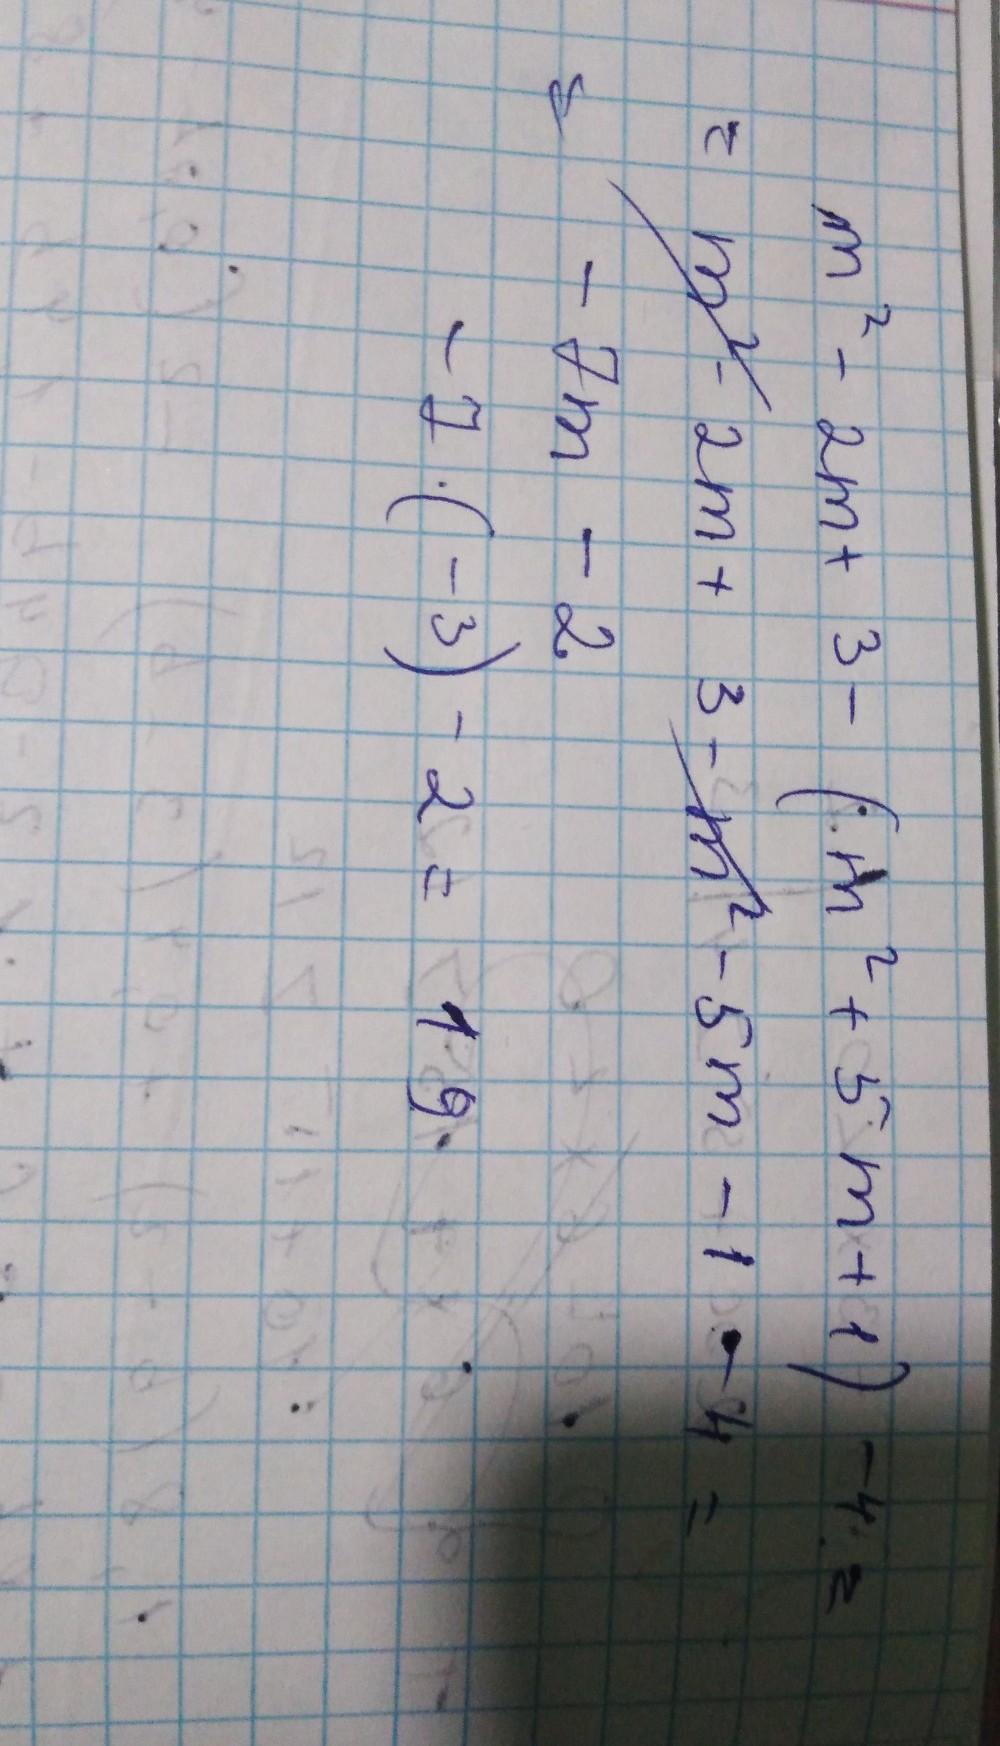 m² - 2m + 3 - (m² + 5m + 1) - 4 =
= m² - 2m + 3 - m² - 5m - 1 - 4 =
= -7m - 2
-7·(-3) - 2 = 19.